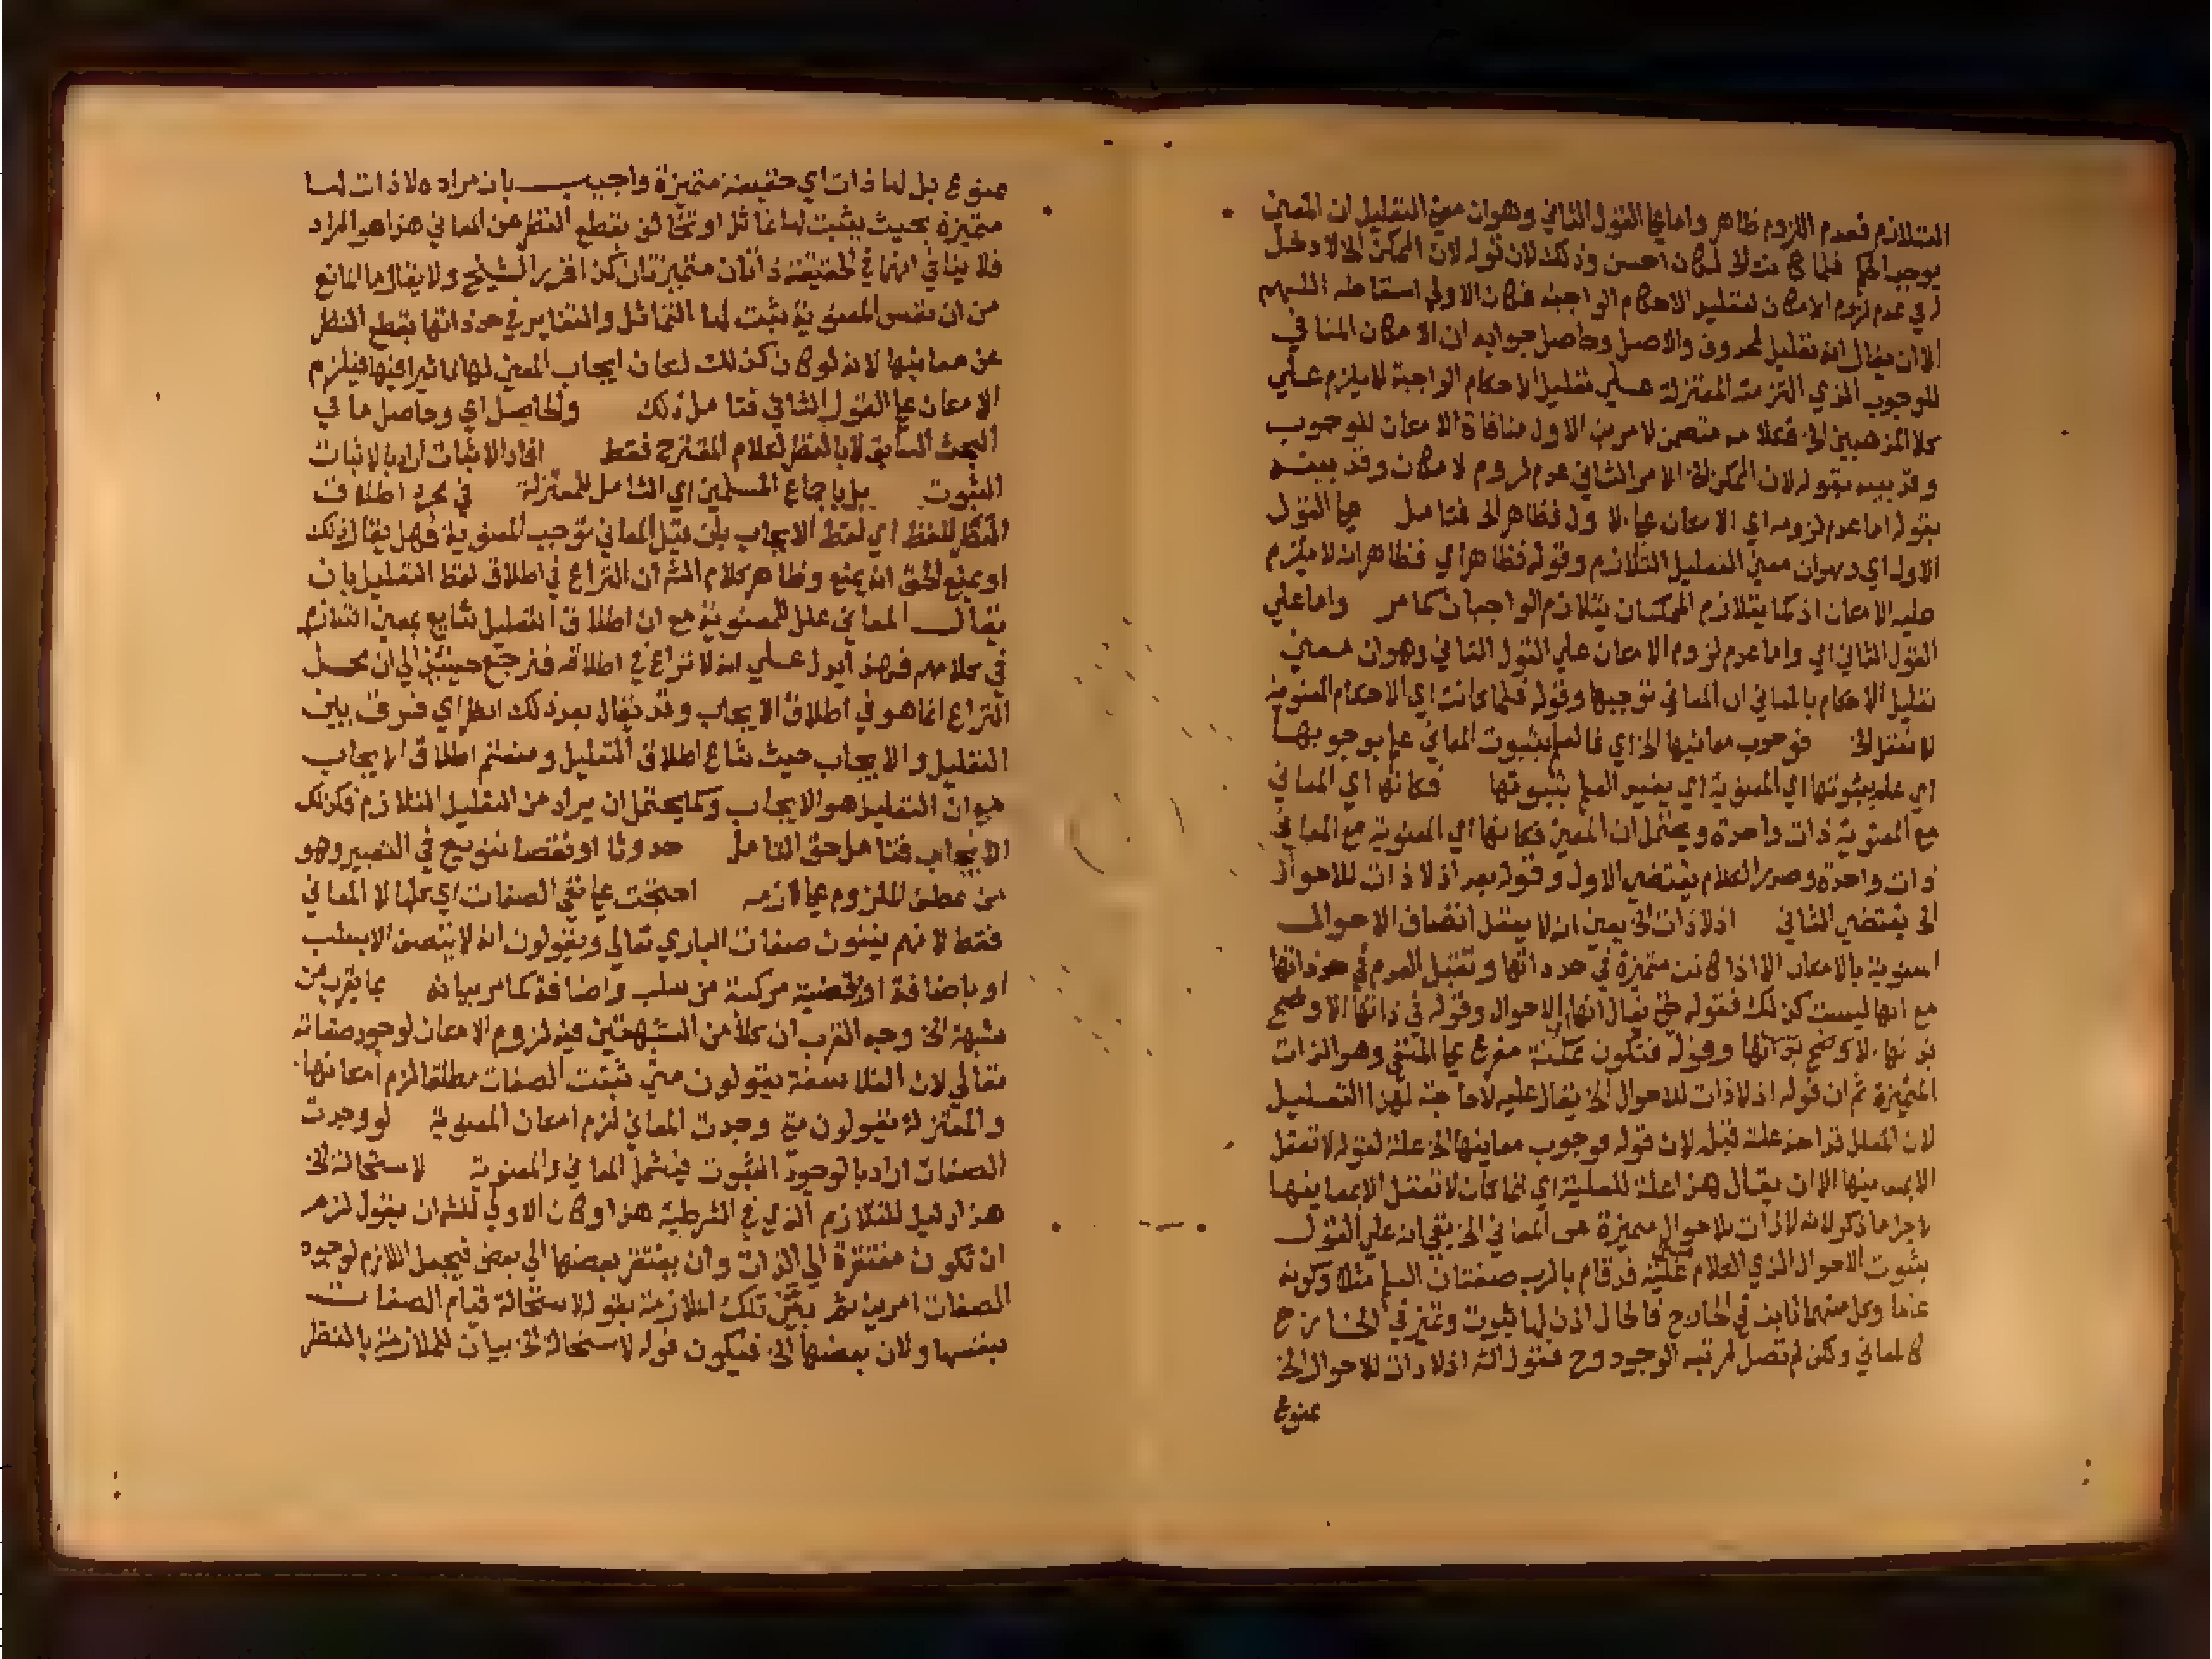 التلازم فعدم اللزوم ظاهر واما على القول الثاني وهو ان معنى التعليل ان المعنى
يوجب الحكم فلما كان احسن وذلك لان قوله لان الممكن الخ لا دخل
له في عدم لزوم الامكان لتعليل الاحكام الواجبة فكان الاولى اسقاطه اللهم
الا ان يقال انه تعليل لمحذوف والاصل وحاصل جوابه ان الامكان المنافي
للوجوب الذي التزمته المعتزلة على تعليل الاحكام الواجبة لا يلزم على
كلا المذهبين الخ فكلامه متضمن لامرين الاول منافاة الامكان للوجوب
وقد بينه بقوله لان الممكن الخ الامر الثاني عدم لزوم الامكان وقد بينه
بقوله اما عدم لزومه اي الامكان على الاول فظاهر الخ فتامل على القول
الاول اي وهو ان معنى التعليل التلازم وقوله فظاهر اي فظاهر انه لا يلزم
عليه الامكان اذ كما يتلازم الممكنان يتلازم الواجبان كما مر واما على
القول الثاني اي واما عدم لزوم الامكان على القول الثاني وهو ان معنى
تعليل الاحكام بالمعاني ان المعاني توجبها وقوله فلما كانت اي الاحكام المعنوية
لا تعقل الخ فوجوب معانيها الخ اي فالعلم بثبوت المعاني علم بوجوبها
اي علم بثبوتها اي المعنوية اي يفيد العلم بثبوتها فكانها اي المعاني
مع المعنوية ذات واحدة ويحتمل ان المعنى فكانها اي المعنوية مع المعاني
ذات واحدة وصدر الكلام يقتضي الاول وقوله بعد اذ لا ذات للاحوال
الخ يقتضي الثاني اذ لا ذات الخ يعني انه لا يعقل اتصاف الاحوال
المعنوية بالامكان الا اذا كانت متميزة في حد ذاتها وتقبل العدم في حد ذاتها
مع انها ليست كذلك فقوله حتى يقال انها اي الاحوال وقوله في ذاتها الاوضح
بذاتها وقوله فتكون ممكنة مفرع على المنفي وهو الذات
المتميزة ثم ان قوله اذ لا ذات للاحوال الخ يقال عليه لا حاجة لهذا التعليل
لان المعلل قد اخذ علته قبله لان قوله فوجوب معانيها الخ علة لقوله لا تعقل
الا بمعانيها الا ان يقال هذا علة للعلية اي انما كان لا تعقل الا بمعانيها
لاجل ما ذكر لانه لا ذات للاحوال متميزة عن المعاني الخ بقي انه على القول
بثبوت الاحوال الذي الكلام عليه قد قام بالرب صفتان العلم مثلا وكونه
عالما وكل منهما ثابت في الخارج فالحال اذن لها ثبوت وتميز في الخارج
كالمعاني ولكن لم تصل لمرتبة الوجود وح فقول الشه اذ لا ذات للاحوال الخ
ممنوع
ممنوع بل لها ذات اي حقيقة متميزة واجيب بان مراده لا ذات لها
متميزة بحيث يثبت لها تماثل او تخالف بقطع النظر عن المعاني هذا هو المراد
فلا ينافي انهما في الحقيقة ذاتان متميزتان كذا قرر الشيخ ولا يقال ما المانع
من ان نفس المعنوية يثبت لها التماثل والتغاير في حد ذاتها بقطع النظر
عن معانيها لانه لو كان كذلك لكان ايجاب المعنى لها تاثيرا فيها فيلزم
الامكان على القول الثاني فتامل ذلك والحاصل اي وحاصل ما في
البحث السابق لا بالنظر لكلام المقترح فقط افاد الاثبات اراد بالاثبات
الثبوت بل باجماع المسلمين اي الشامل للمعتزلة في مجرد اطلاق
النظر للفظ اي لفظ الايجاب بان قيل المعاني توجب المعنوية فهل يقال ذلك
او يمنع الحق انه يمنع وظاهر كلام الشه ان النزاع في اطلاق لفظ التعليل بان
يقال المعاني علل للمعنوية مع ان اطلاق التعليل شايع بمعنى التلازم
في كلامهم فهذا يدل على انه لا نزاع في اطلاقه فنرجع حينئذ الى ان محل
النزاع انما هو في اطلاق الايجاب وقد يقال بعد ذلك انظر اي فرق بين
التعليل والايجاب حيث شاع اطلاق التعليل ومنعتم اطلاق الايجاب
مع ان التعليل هو الايجاب وكما يحتمل ان يراد من التعليل التلازم فكذلك
الايجاب فتامل حق التامل حدوثا او نقصا تنويع في التعبير وهو
من عطف الملزوم على لازمه احتجت على نفي الصفات اي كلها لا المعاني
فقط لانهم ينفون صفات الباري تعالى ويقولون انه لا يتصف الا بسلب
او باضافة او بقضية مركبة من سلب واضافة كما مر بيانه بما يقرب من
شبهة الخ وجه القرب ان كلا من الشبهتين فيه لزوم الامكان لوجود صفاته
تعالى لان الفلاسفة يقولون متى ثبتت الصفات مطلقا لزم امكانها
والمعتزلة يقولون متى وجدت المعاني لزم امكان المعنوية لو وجدت
الصفات اراد بالوجود الثبوت فيشمل المعاني والمعنوية لاستحالة الخ
هذا دليل للتلازم الذي في الشرطية هذا وكان الاولى للشه ان يقول لزم
ان تكون مفتقرة الى الذات وان يفتقر بعضها الى بعض فيجعل اللازم لوجود
الصفات امرين ثم يبين تلك الملازمة بقوله لاستحالة قيام الصفات
بنفسها ولان بعضها الخ فيكون قوله لاستحالة الخ بيان للملازمة بالنظر